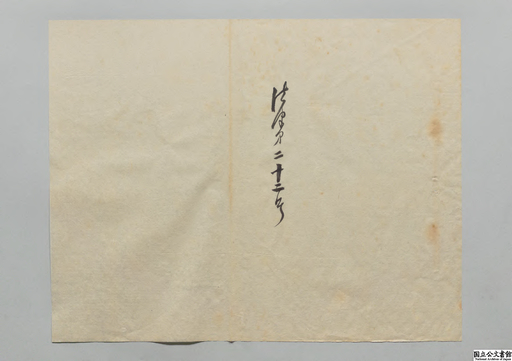 法律第二十二号
国立公文書館
National Archives of Japan